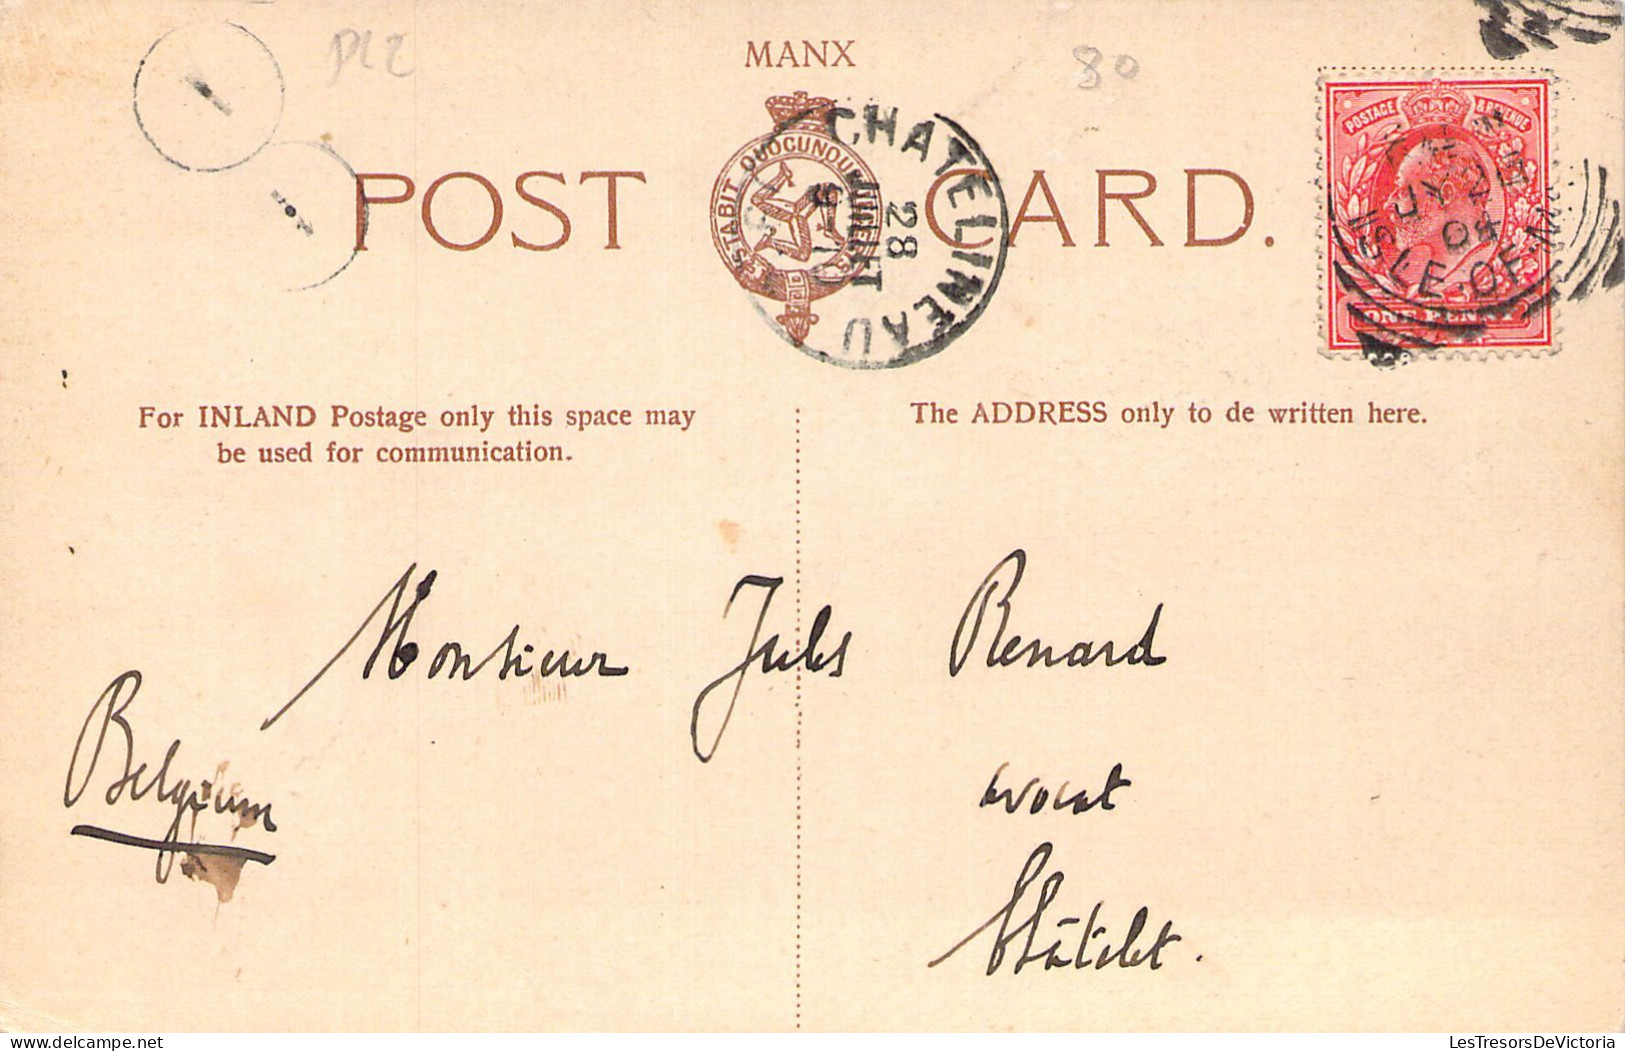 PLZ
80
MANX
POST CARD.
STABIT QUOCUNQUE JECERIS
CHATELINEAU
28
JUILLT
POSTAGE & REVENUE
ISLE OF MAN
JY 26
04
ONE PENNY
For INLAND Postage only this space may
be used for communication.
The ADDRESS only to de written here.
Monsieur Jules Renard
Belgium
avocat
Châtelet.
LesTresorsDeVictoria